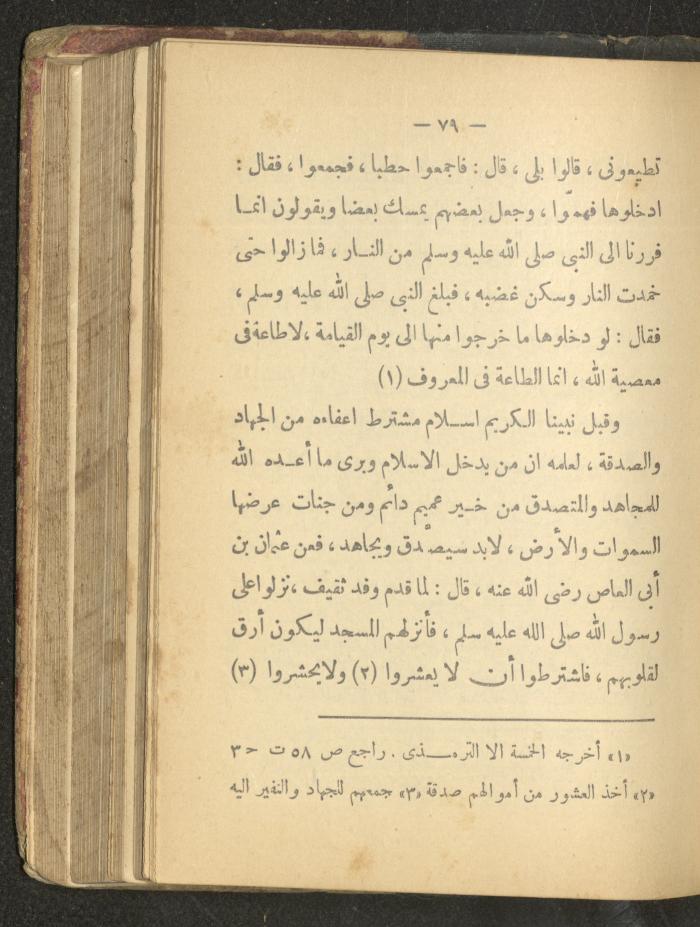 — ٧٩ —
تطيعونى ، قالوا بلى ، قال : فاجمعوا حطبا ، فجمعوا ، فقال :
ادخلوها فهمّوا ، وجعل بعضهم يمسك بعضا ويقولون انما
فررنا الى النبى صلى الله عليه وسلم من النار ، فما زالوا حتى
خمدت النار وسكن غضبه ، فبلغ النبى صلى الله عليه وسلم ،
فقال : لو دخلوها ما خرجوا منها الى يوم القيامة ، لا طاعة فى
معصية الله ، انما الطاعة فى المعروف (١)
وقبل نبينا الكريم اسلام مشترط اعفاءه من الجهاد
والصدقة ، لعلمه ان من يدخل الاسلام ويرى ما أعده الله
للمجاهد والمتصدق من خير عميم دائم ومن جنات عرضها
السموات والأرض ، لابد سيصدّق ويجاهد ، فعن عثمان بن
أبى العاص رضى الله عنه ، قال : لما قدم وفد ثقيف ، نزلوا على
رسول الله صلى الله عليه سلم ، فأنزلهم المسجد ليكون أرق
لقلوبهم ، فاشترطوا أن لا يعشروا (٢) ولا يحشروا (٣)
«١» أخرجه الخمسة الا الترمذى . راجع ص ٥٨ ت ح ٣
«٢» أخذ العشور من أموالهم صدقة «٣» جمعهم للجهاد والنفير اليه